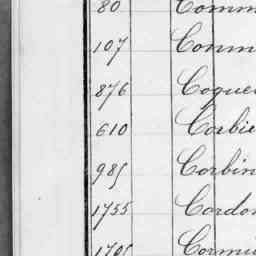 80 Comm
107 Conm
876 Coque
610 Corbie
985 Corbin
1755 Cordon
1705 Cormi